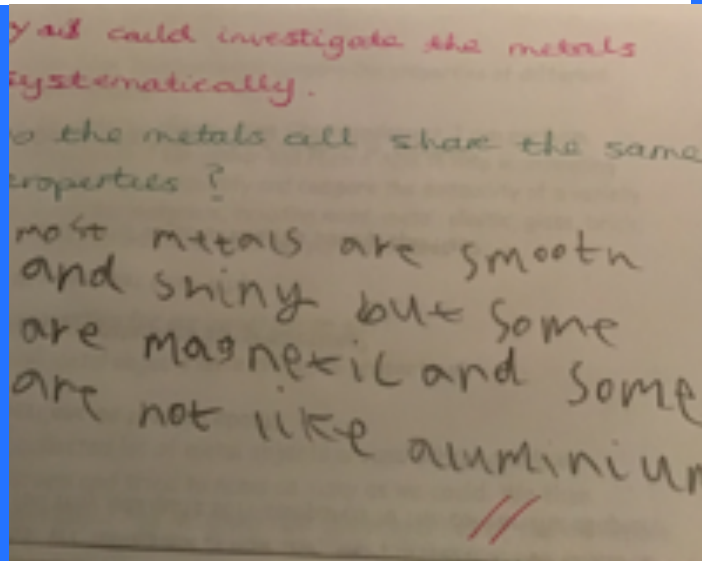 you could investigate the metals
systematically.
o the metals all share the same
roperties ?
most metals are smooth
and shiny but some
are magnetic and some
are not like aluminium